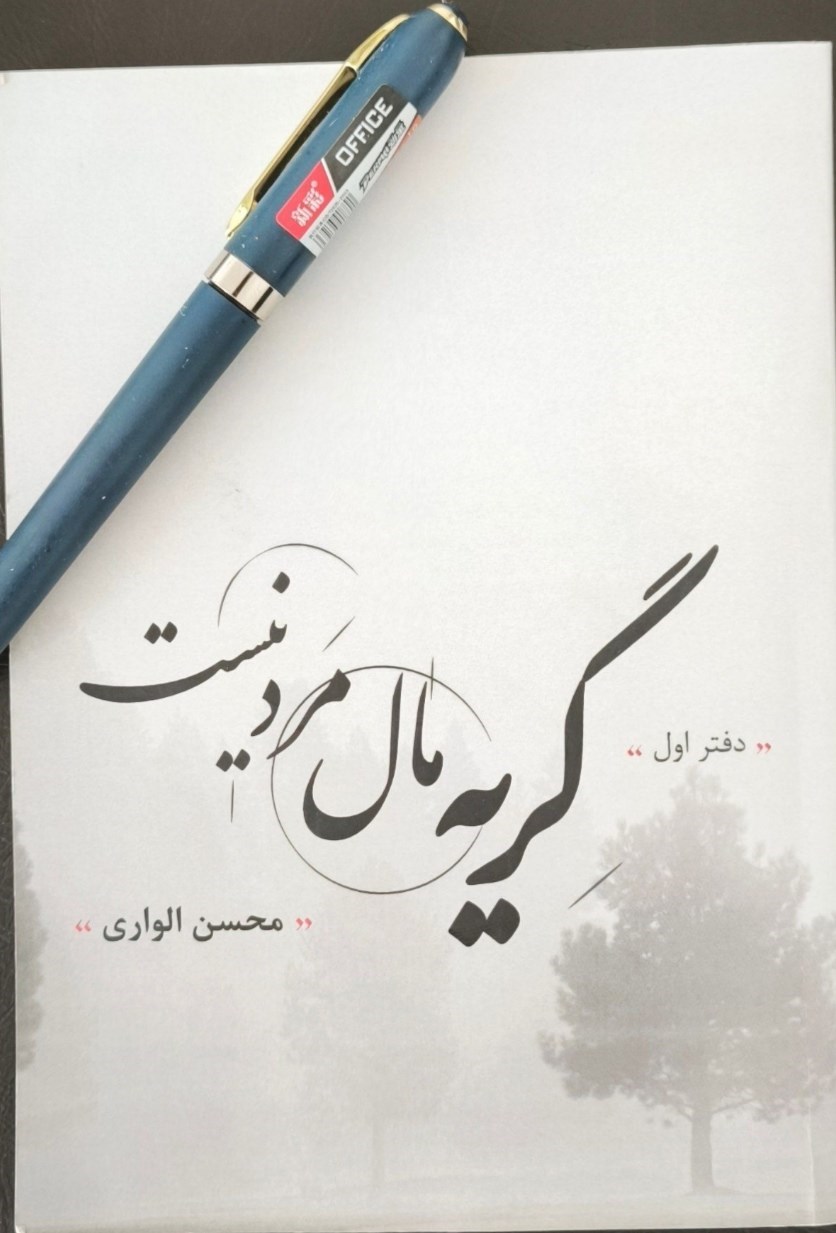 OFFICE
گریه مال مرد نیست
« دفتر اول »
« محسن الواری »